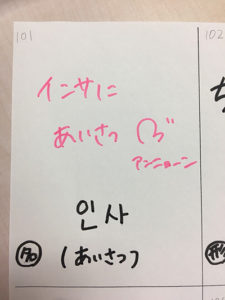 101
102
インサに
あいさつ
アンニョーン
인사
名
(あいさつ)
形